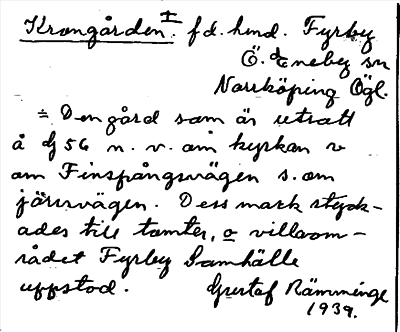 Krongården. ± f d. hmd. Fyrby
Ö. Eneby sn
Norrköping Ögl.
= Den gård som är utsatt
å G 56 n. v. om kyrkan o
om Finspångsvägen s. om
järnvägen. Dess mark styck-
ades till tomter, o villaom-
rådet Fyrby Samhälle
uppstod. Gustaf Rämminge
1939.